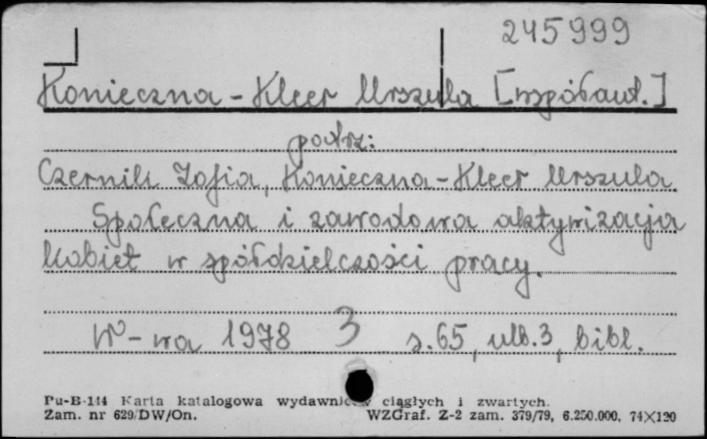 245999
Konieczna-Kleer Urszula [współaut.]
patrz:
Czernik Zofia, Konieczna-Kleer Urszula
Społeczna i zawodowa aktywizacja
kobiet w spółdzielczości pracy.
W-wa 1978 3 s.65, ulb.3, bibl.
Pu-B-144 Karta katalogowa ciągłych i zwartych.
Zam. nr 629/DW/On. WZGraf. Z-2 zam. 379/79, 6.250.000, 74X120